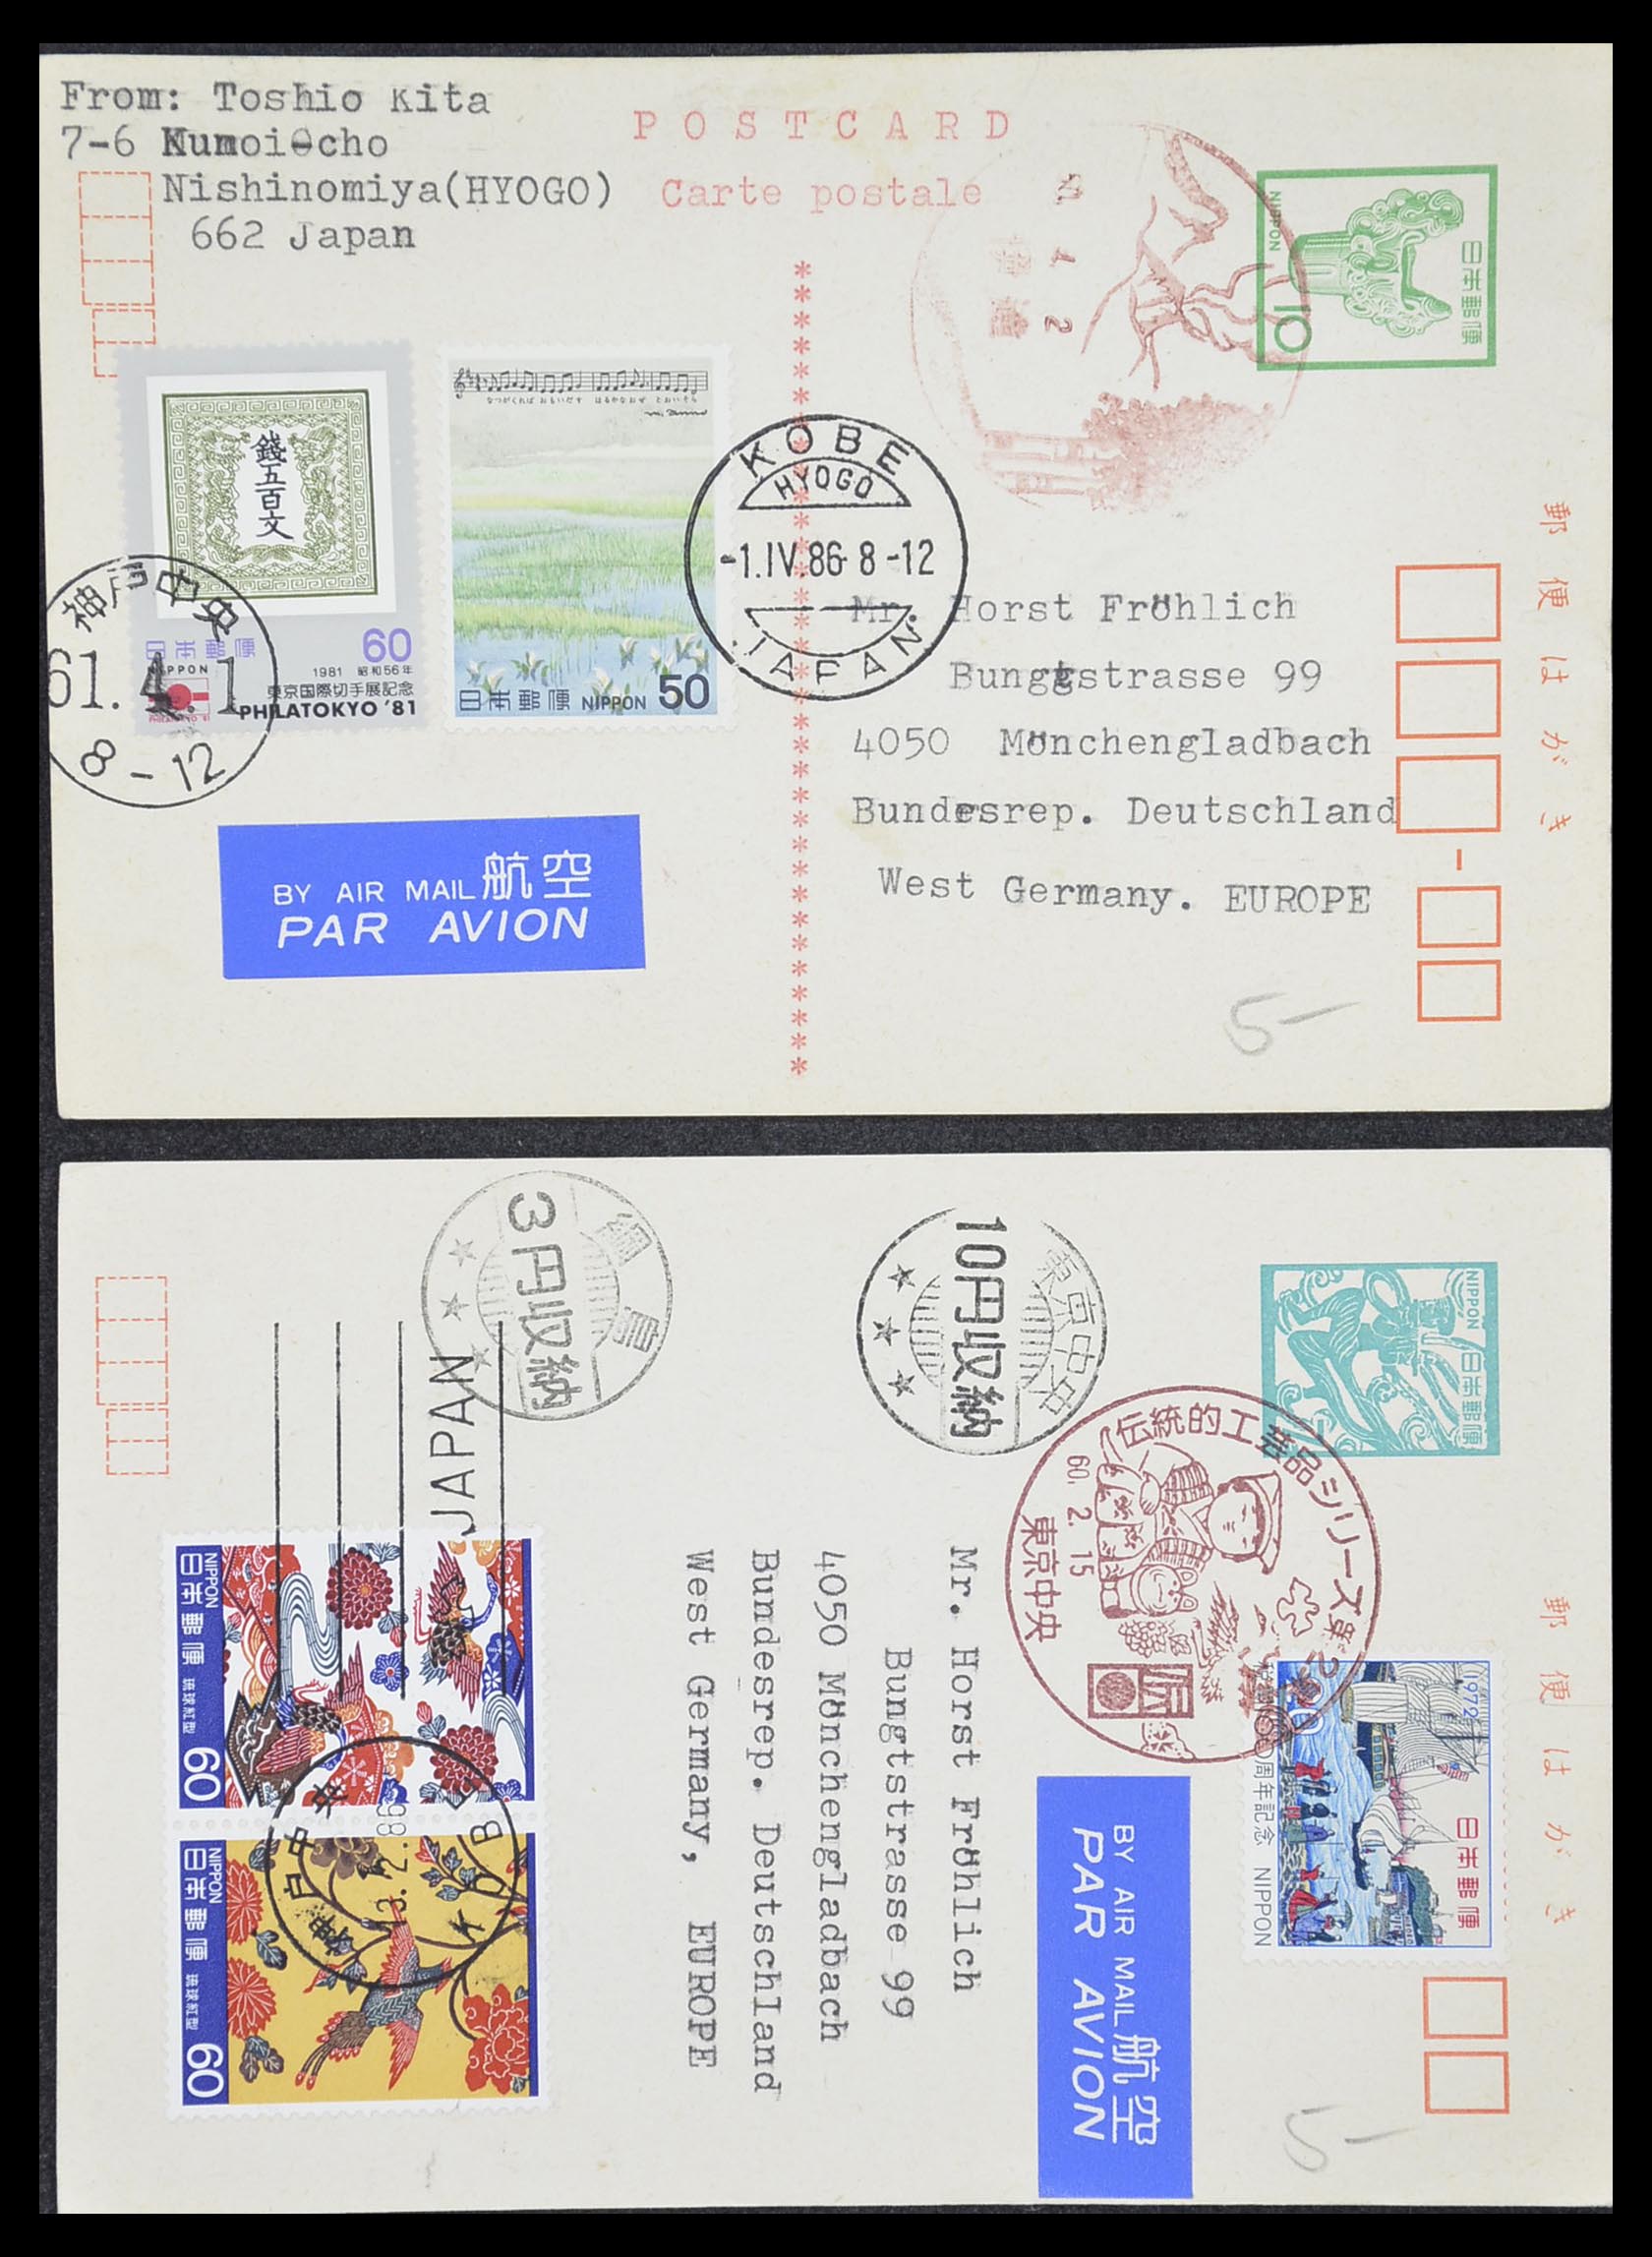 From: Toshio Kita
7-6 Kumoi-cho
Nishinomiya(HYOGO)
662 Japan
POSTCARD
Carte postale
NIPPON
日本郵便
10
錢五百文
日本郵便
NIPPON
60
1981 昭和56年
東京国際切手展記念
PHILATOKYO '81
なつがくれば おもいだす はるかなおぜ とおいそら
日本郵便 NIPPON 50
KOBE
HYOGO
-1.IV.86 8-12
JAPAN
神戸中央
61. 4. 1
8-12
Mr. Horst Fröhlich
Bungtstrasse 99
4050 Mönchengladbach
Bundesrep. Deutschland
West Germany. EUROPE
BY AIR MAIL 航空
PAR AVION
郵便はがき
5-
3円収納
10円収納
東京中央
NIPPON
日本郵便
伝統的工芸品シリーズ第2
60. 2. 15
東京中央
JAPAN
Mr. Horst Fröhlich
Bungtstrasse 99
4050 Mönchengladbach
Bundesrep. Deutschland
West Germany, EUROPE
NIPPON
日本郵便
琉球紅型
60
NIPPON
日本郵便
琉球紅型
60
1972
日本郵便
周年記念 NIPPON
BY AIR MAIL 航空
PAR AVION
郵便はがき
5-